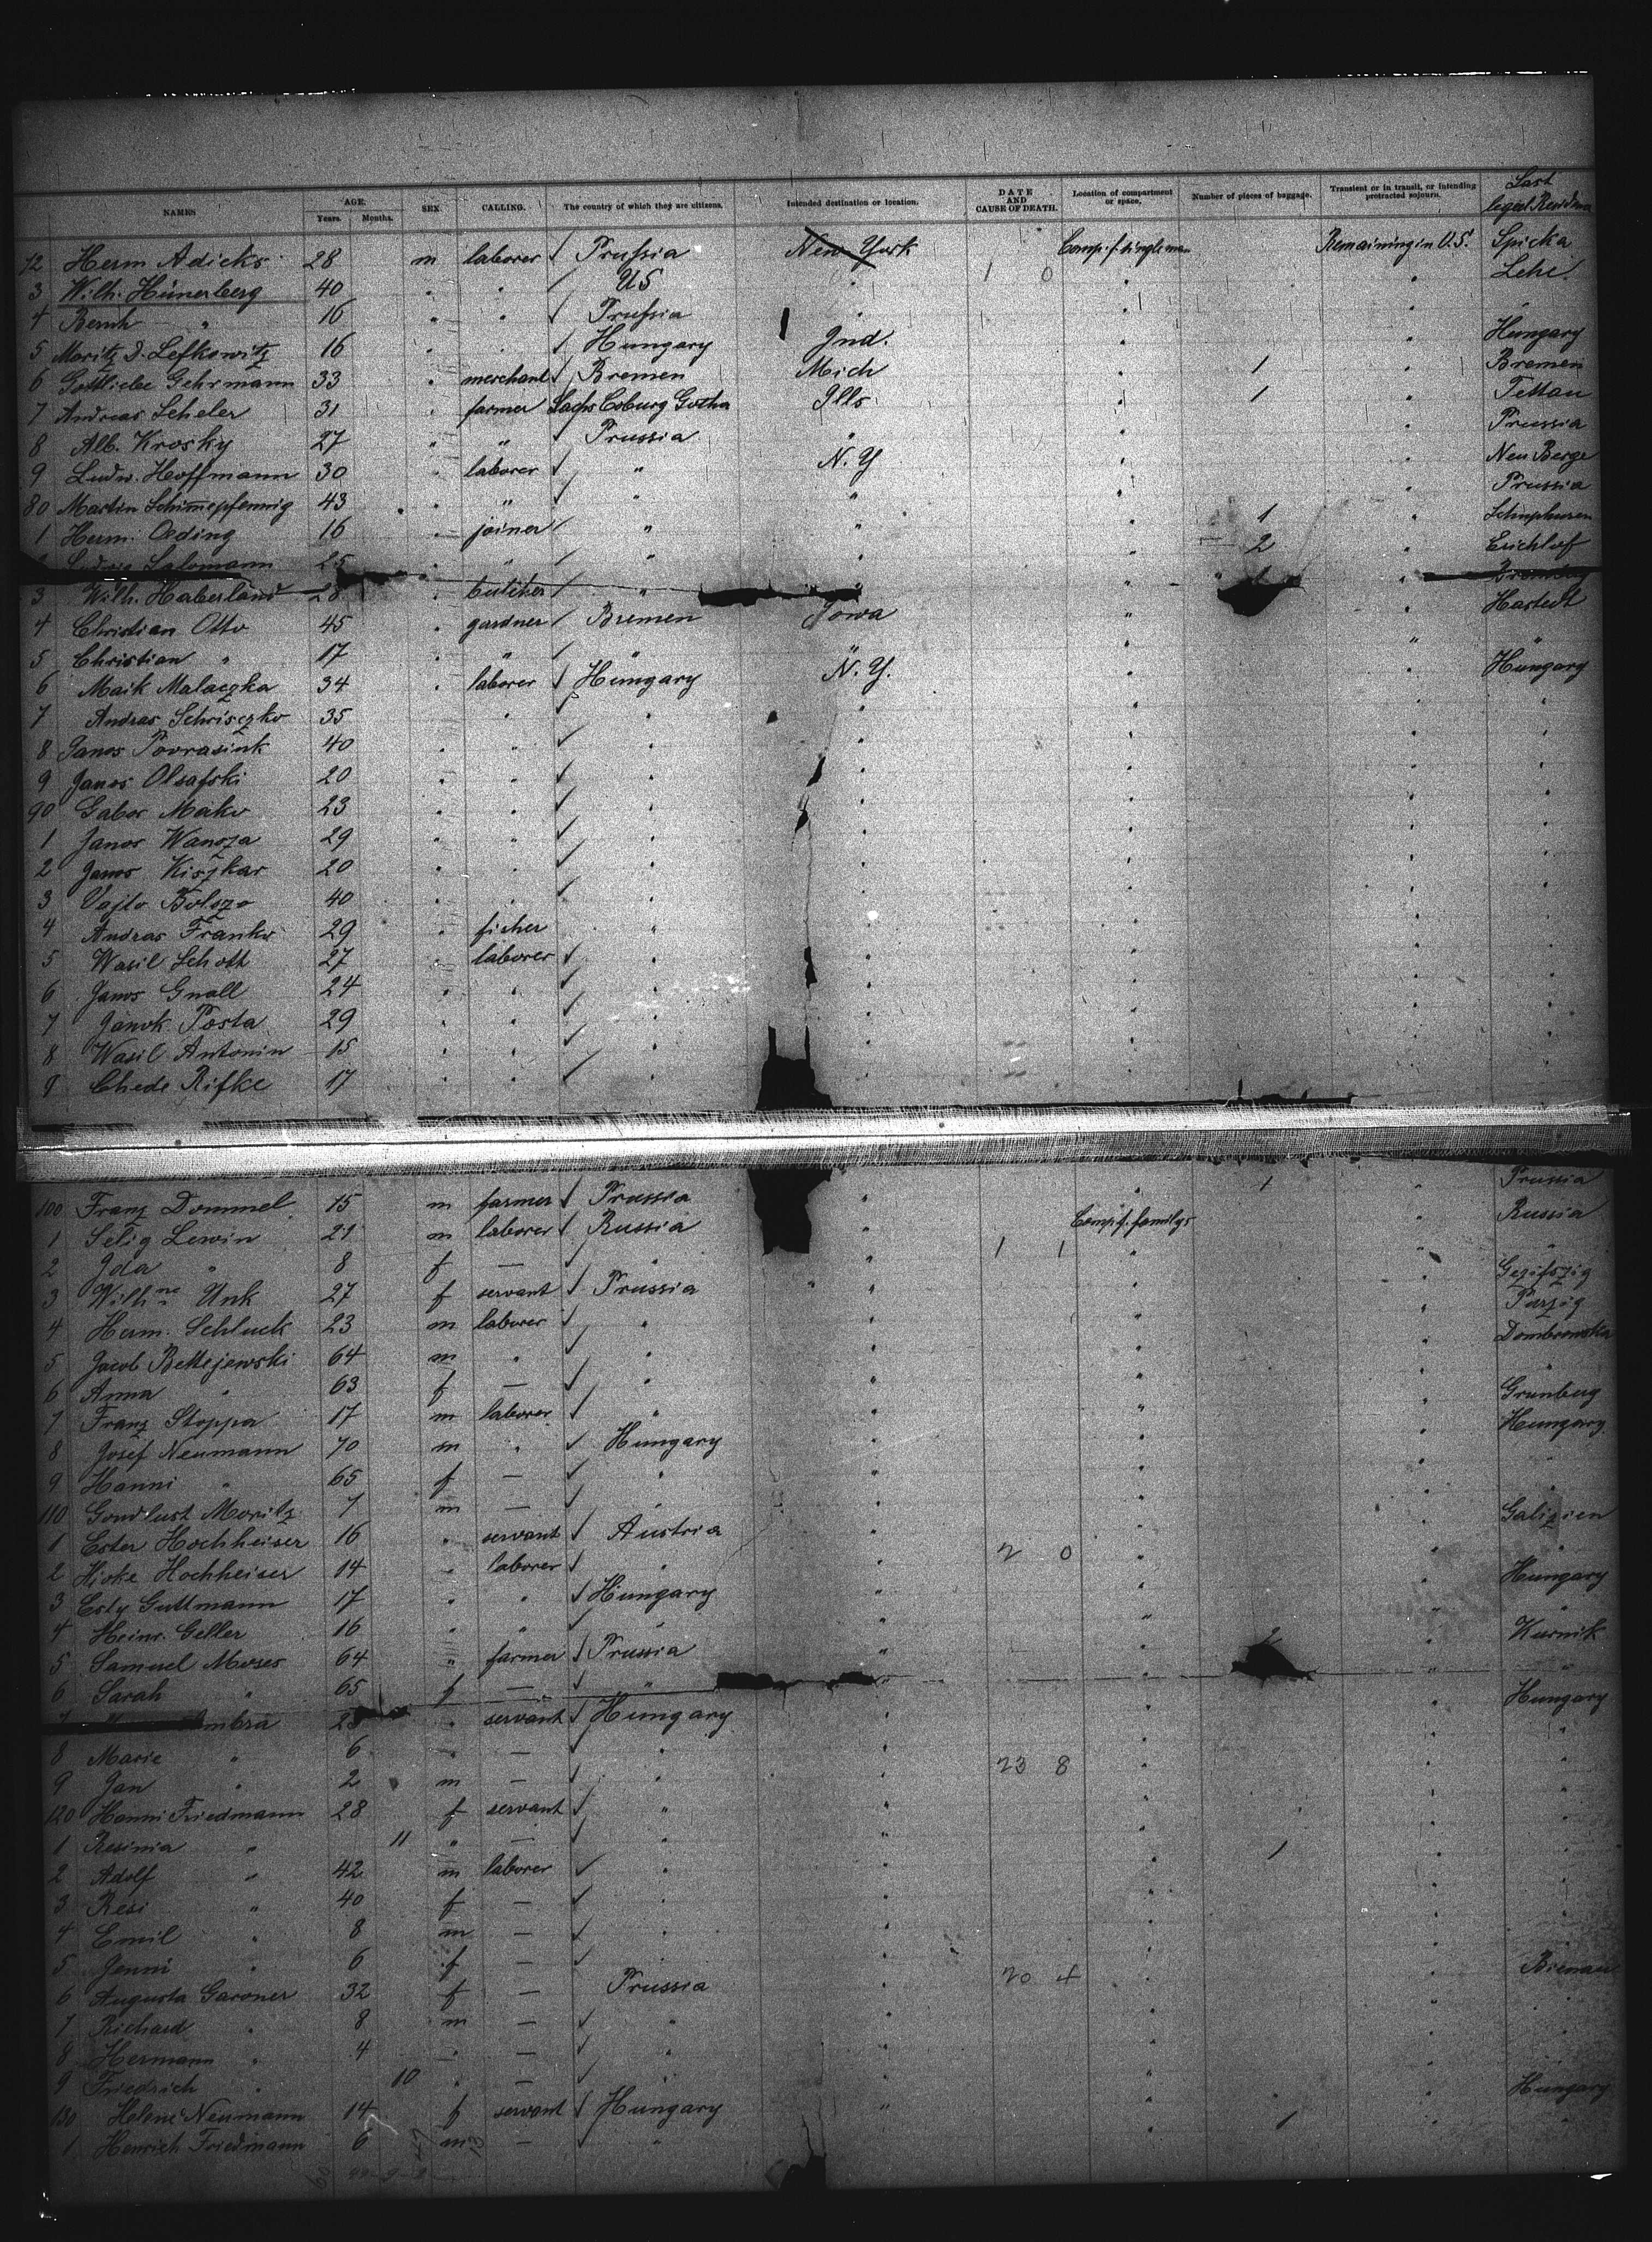 NAMES AGE. Years. Months. SEX. CALLING. The country of which they are citizens. Intended destination or location. DATE AND CAUSE OF DEATH. Location of compartment or space. Number of pieces of baggage. Transient or in transit, or intending protracted sojourn. Last legal Residence
72 Herm Adicks 28 m laborer √ Prussia New York Comp. f. single men Remaining in U.S. Spicka
3 Wilh. Hünerberg 40 " " √ US " 1 0 " " Lehe
4 Bernh " 16 " " √ Prussia " " " "
5 Moritz D. Lefkowitz 16 " " √ Hungary Ind. " " Hungary
6 Gottliebe Gehrmann 33 " merchant √ Bremen Mich " 1 " Bremen
7 Andreas Scheler 31 " farmer Sachs Coburg Gotha Ills " 1 " Tettau
8 Alb. Krosky 27 " " √ Prussia " " " Prussia
9 Ludw. Hoffmann 30 " laborer √ " N.Y " " Neu Berge
80 Martin Schimmepfennig 43 " " √ " " " " Prussia
1 Herm. Oeding 16 " joiner √ " " " 1 "
2 Ludwig Salomann 25 " " √ " " " 2 "
3 Wilh. Haberland 28 " butcher √ " " "
4 Christian Otto 45 " gardner √ Bremen Iowa " " Hastedt
5 Christian " 17 " " √ " " " " "
6 Maik Malaczka 34 " laborer √ Hungary N.Y. " " Hungary
7 Andras Schriszko 35 " " √ " " " " "
8 Janos Povrasink 40 " " √ " " " " "
9 Janos Olsafski 20 " " √ " " " " "
90 Gabor Mako 23 " " √ " " " " "
1 Janos Wansza 29 " " √ " " " " "
2 Janos Kiszkar 20 " " √ " " " " "
3 Vajto Bolszo 40 " " √ " " " " "
4 Andras Franko 29 " ficher " " " " "
5 Wasil Schott 27 " laborer √ " " " " "
6 Janos Gnall 24 " " √ " " " " "
7 Janok Posta 29 " " √ " " " " "
8 Wasil Antonin 15 " " √ " " " " "
9 Chede Rifke 17 " " √ " " " " "
100 Franz Dommel 15 m farmer √ Prussia " " 1 " Prussia
1 Selig Lewin 21 m laborer √ Russia " Comp. f. familys " Russia
2 Ida " 8 f — √ " " 1 1 " " "
3 Wilhne Unk 27 f servant √ Prussia " " "
4 Herm. Schluck 23 m laborer √ " " " " Purzig
5 Jacob Bettejewski 64 m " √ " " " " Dombrowska
6 Anna " 63 f — √ " " " " "
7 Franz Stoppa 17 m laborer √ " " " " Grunberg
8 Josef Neumann 70 m " √ Hungary " " " Hungary
9 Hanni " 65 f — √ " " " " "
110 Gondlust Moritz 7 m — √ " " " " "
1 Ester Hochheiser 16 " servant √ Austria " " " Galizien
2 Hirke Hochheiser 14 " laborer √ " " 2 0 " " "
3 Esty Guttmann 17 " " √ Hungary " " " Hungary
4 Heinr. Geller 16 " " √ " " " " "
5 Samuel Moses 64 " farmer √ Prussia " " 2 " Kurnik
6 Sarah " 65 f — √ " " " " "
7 Ambra 28 " servant √ Hungary " " " Hungary
8 Marie " 6 " — √ " " " " "
9 Jan " 2 m — √ " " 23 8 " " "
120 Hanni Friedmann 28 f servant √ " " " " "
1 Resinia " 11 " — √ " " " " "
2 Adolf " 42 m laborer √ " " " 1 " "
3 Resi " 40 f — √ " " " " "
4 Emil " 8 m — √ " " " " "
5 Jenni " 6 f — √ " " " " "
6 Augusta Garoner 32 f — Prussia " 20 4 " " Bienau
7 Richard " 8 m — √ " " " " "
8 Hermann " 4 " — √ " " " " "
9 Friedrich " 10 " — √ " " " " "
130 Helene Neumann 14 f servant √ Hungary " " " Hungary
1 Henrich Friedmann 6 m — √ " " " 1 " "